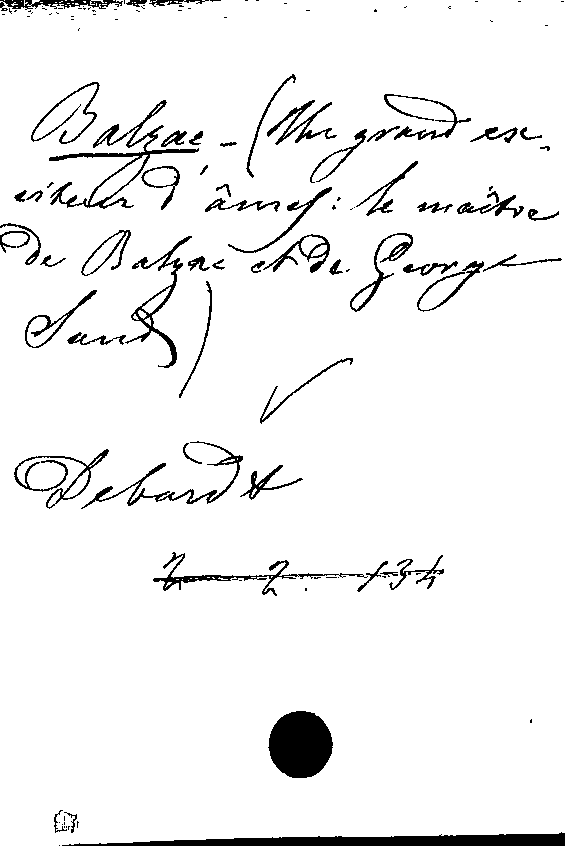 Balzac - (Un grand ex-
citeur d'âmes : le maître
de Balzac et de George
Sand)
Debardt
Z Z. 134